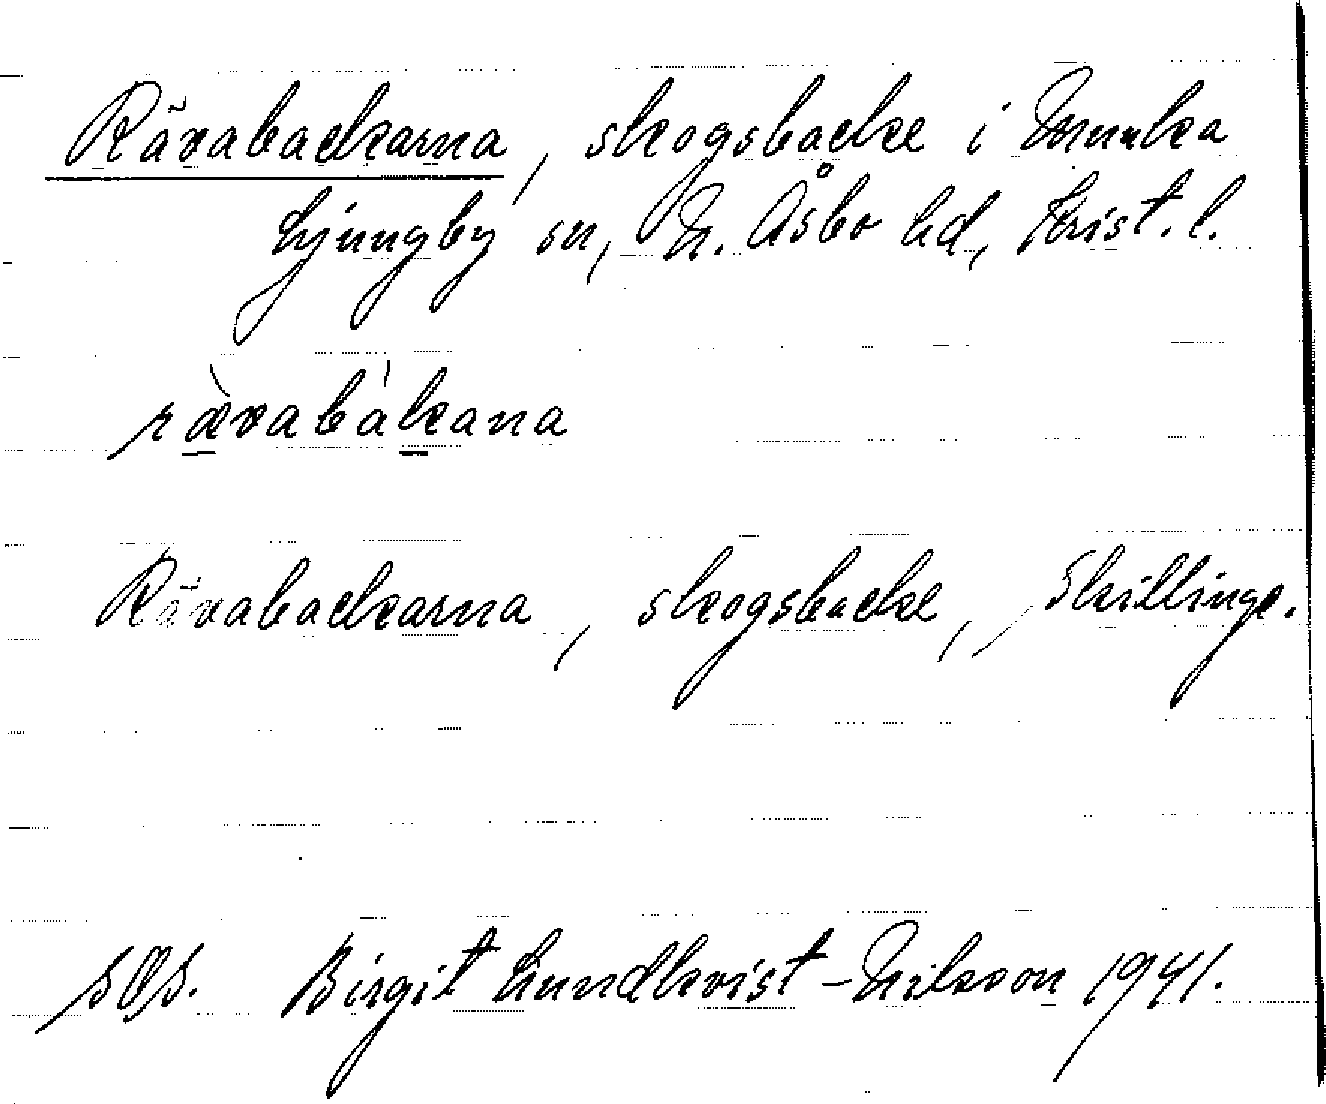 Rävabackarna, skogsbacke i Munka
Ljungby sn, N. Åsbo hd, Krist. l.
rævabàkana
Rävabackarna, skogsbacke, Skillinge.
Birgit Lundkvist-Nilsson 1941.